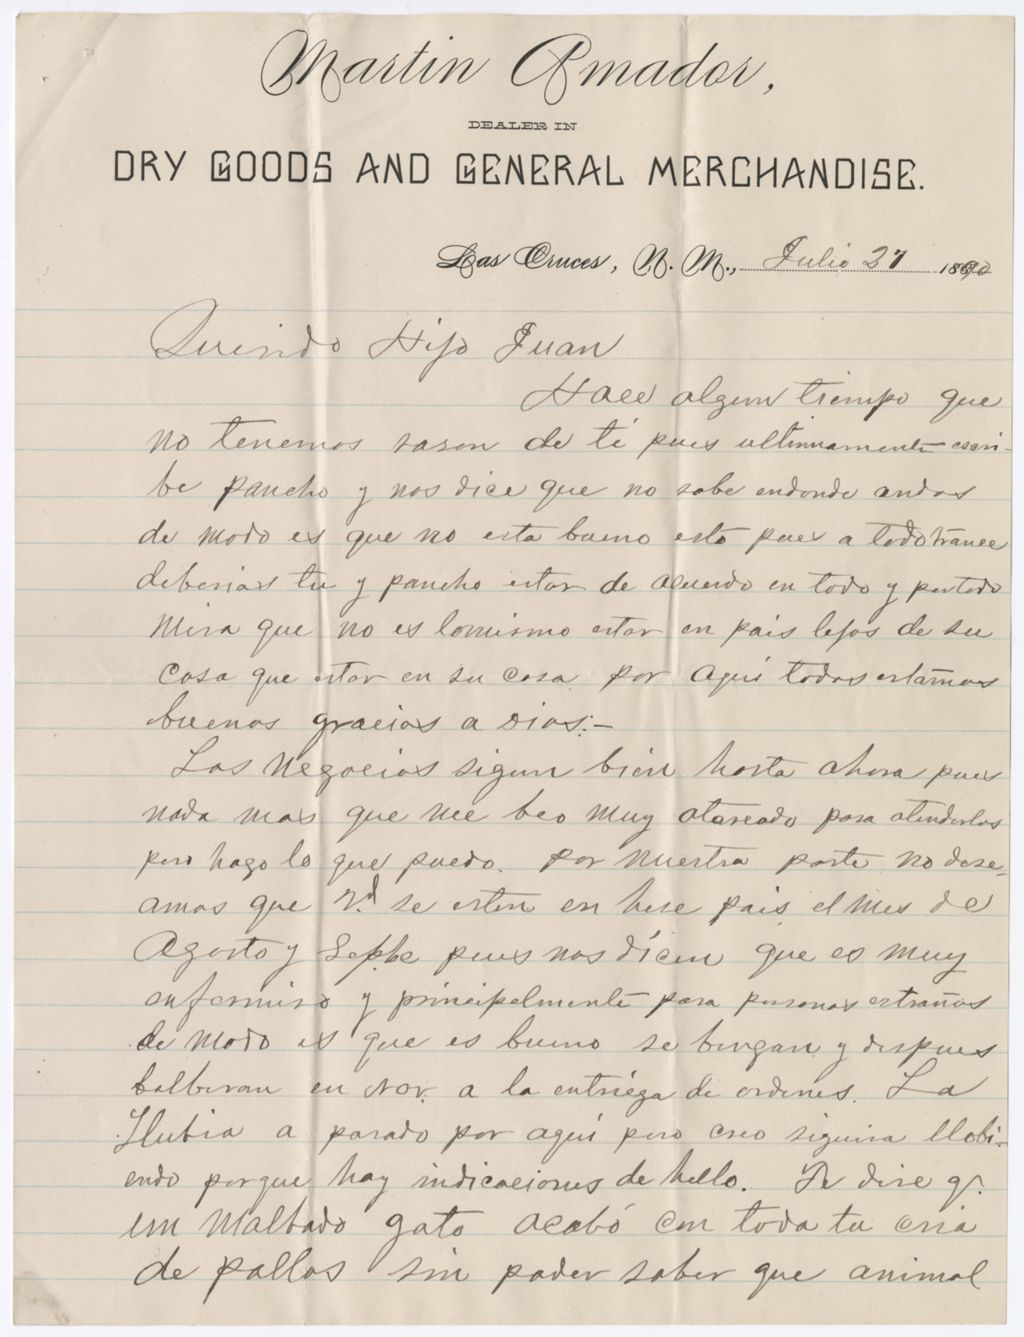 Martin Amador,
DEALER IN
DRY GOODS AND GENERAL MERCHANDISE.
Las Cruces, N. M., Julio 27 1890
Querido Hijo Juan
Hace algun tiempo que
no tenemos rason de ti pues ultimamente escri-
be pancho y nos dice que no sabe endonde andas
de modo es que no esta bueno esto pues a todo trance
deberias tu y pancho estar de acuerdo en todo y portodo
Mira que no es lomismo estar en pais lejos de su
casa que estar en su casa por aqui todos estamos
buenos gracias a Dios:—
Los Negocios sigun bien hasta ahora pues
nada mas que me beo muy atareado para atenderlos
pero hago lo que puedo. por nuestra parte no dese-
amos que Vd se esten en hese pais el mes de
Agosto y Sepbe pues nos dicen que es muy
enfermiso y principelmente para personas estrañas
de modo es que es bueno se bengan y despues
balberan en Nov. a la entriega de ordenes. La
Llubia a parado por aqui pero creo siguira llobi-
endo porque hay indicaciones de hello. Te dire q.
un Malbado gato acabó con toda tu cria
de pollos sin poder saber que animal